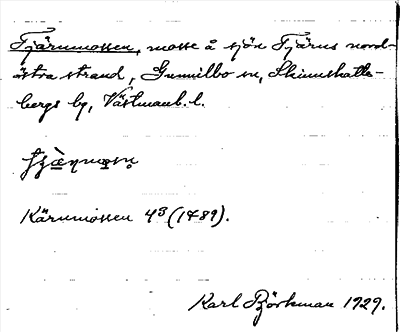 Fjärnmossen, mosse å sjön Fjärns nord-
östra strand, Gunnilbo sn, Skinnskatte-
bergs hg, Västmanl. l.
Kärnmossen 43 (1489).
Karl Björkman 1929.